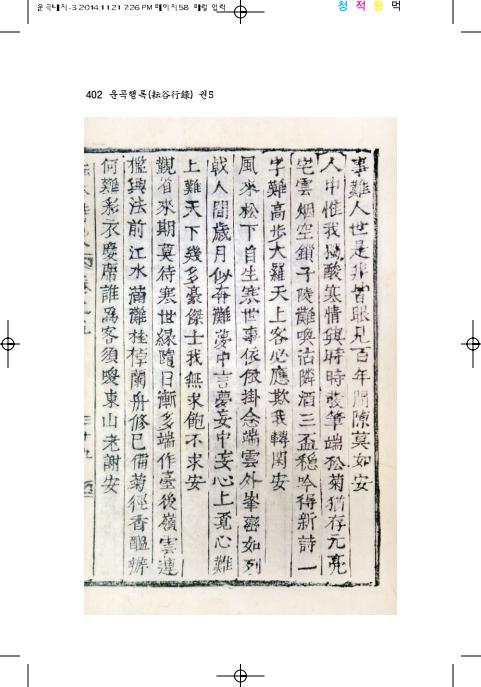 운곡내지-3 2014.11.21 7:26 PM 페이지58 매월 입력
청 적 황 먹
402 운곡행록(耘谷行錄) 권5
事難人世是非皆眼見百年閒隙莫如安
人中惟我最酸寒情興時時發筆端松菊猶存元亮
宅雲烟空鎖子陵灘喚沽隣酒三盃穩吟得新詩一
字難高步大羅天上客必應欺我轉閑安
風來松下自生寒世事依依掛念端雲外峯密如列
戟人間歲月似奔灘夢中言夢妄中妄心上覓心難
上難天下幾多豪傑士我無求飽不求安
觀省來期莫待寒世緣隨日漸多端作臺後嶺雲連
檻興法前江水滿灘桂棹蘭舟修已備菊徑香醞辦
何難彩衣慶席誰爲客須噯東山老謝安